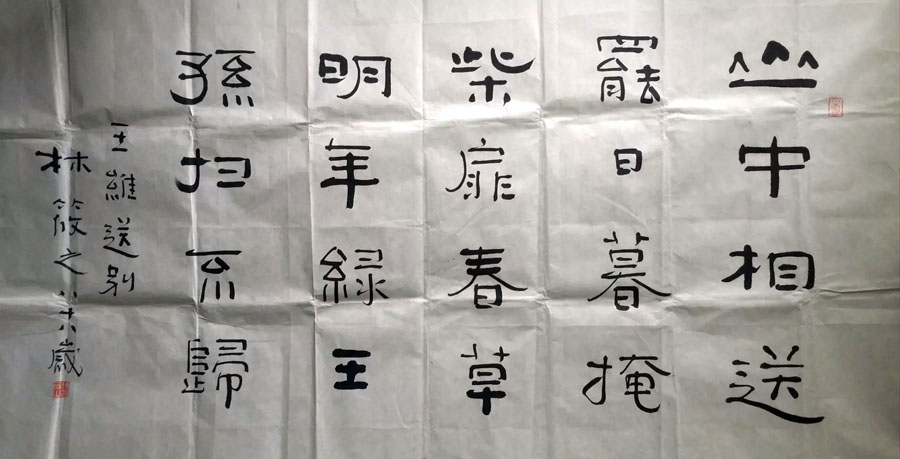 山中相送
罷日暮掩
柴扉春草
明年緑王
孫归不歸
王維送别
林筱之八十八歲